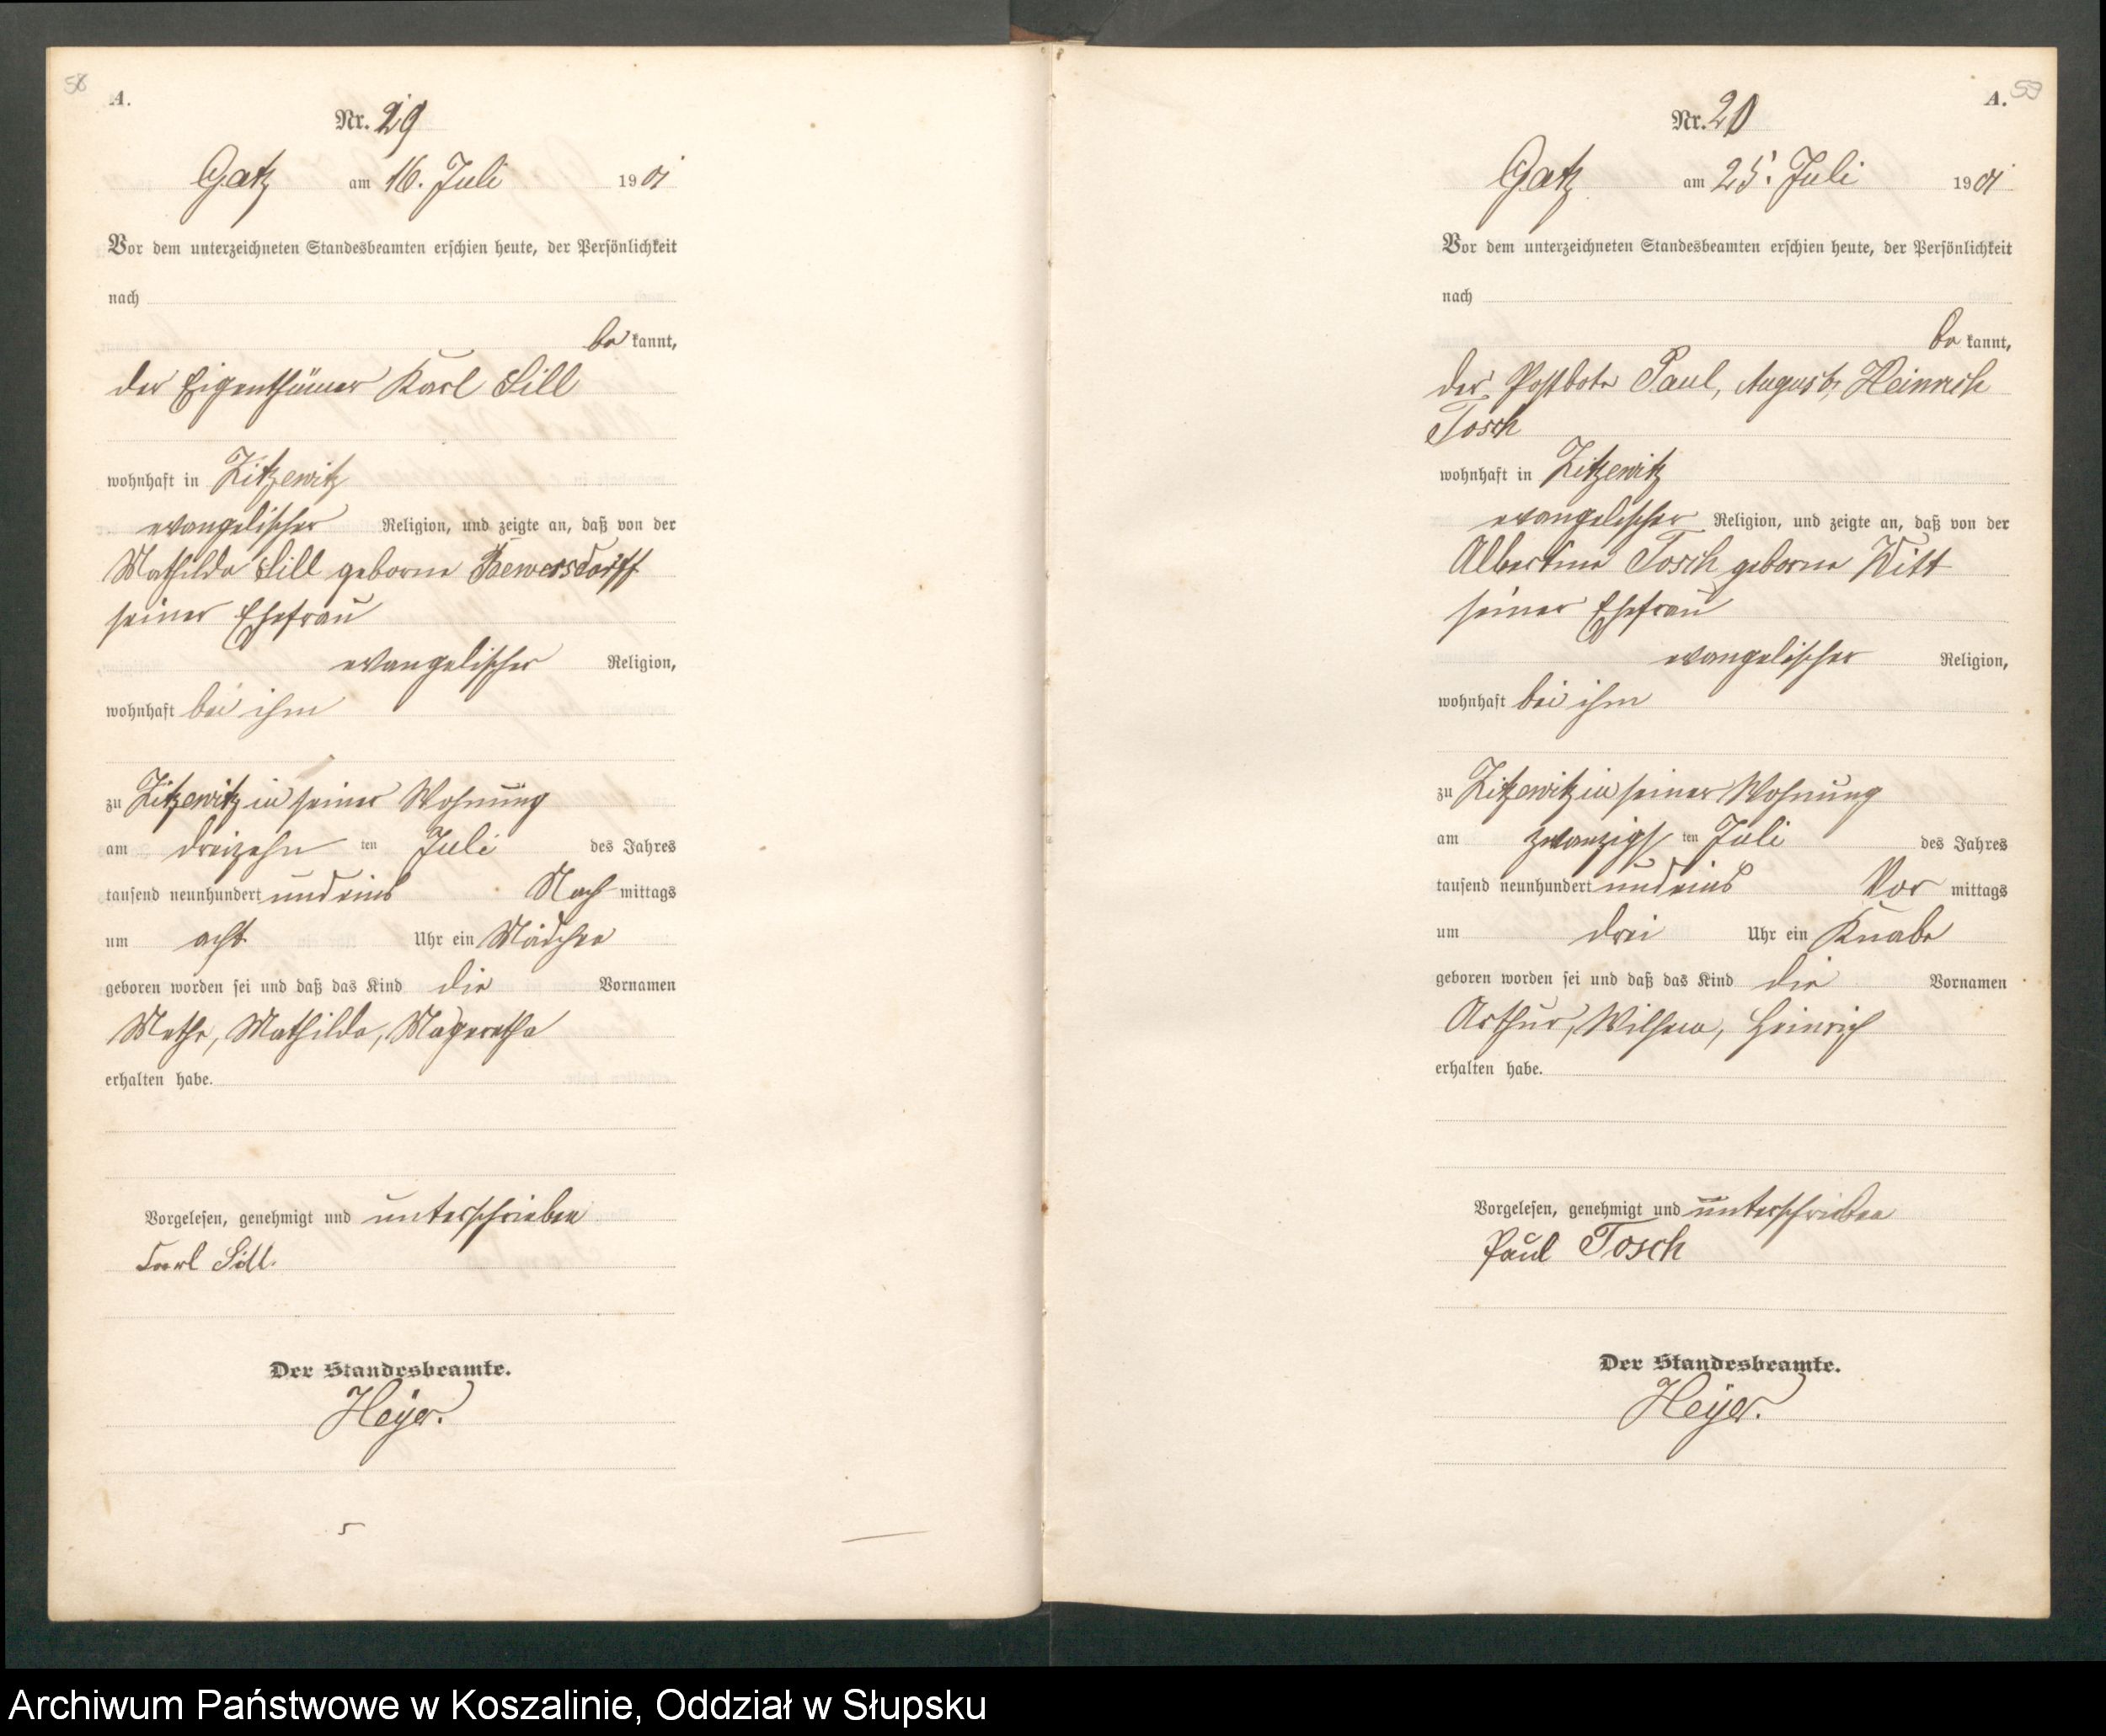 58
A.
Nr. 29
Gatz am 16. Juli 1901
Vor dem unterzeichneten Standesbeamten erschien heute, der Persönlichkeit
nach
be kannt,
der Eigenthümer Karl Sill
wohnhaft in Zitzewitz
evangelischer Religion, und zeigte an, daß von der
Mathilde Sill geborne Bewersdorff
seiner Ehefrau
evangelischer Religion,
wohnhaft bei ihm
zu Zitzewitz in seiner Wohnung
am dreizehn ten Juli des Jahres
tausend neunhundert und eins Nach mittags
um acht Uhr ein Mädchen
geboren worden sei und daß das Kind die Vornamen
Methe, Mathilde, Mageretha
erhalten habe.
Vorgelesen, genehmigt und unterschrieben
Carl Sill.
Der Standesbeamte.
Heyer.
5
59
A.
Nr. 20
Gatz am 25. Juli 1901
Vor dem unterzeichneten Standesbeamten erschien heute, der Persönlichkeit
nach
be kannt,
der Postbote Paul, August, Heinrich
Tosch
wohnhaft in Zitzewitz
evangelischer Religion, und zeigte an, daß von der
Albertine Tosch geborne Witt
seiner Ehefrau
evangelischer Religion,
wohnhaft bei ihm
zu Zitzewitz in seiner Wohnung
am zwanzigs ten Juli des Jahres
tausend neunhundert und eins Vor mittags
um drei Uhr ein Knabe
geboren worden sei und daß das Kind die Vornamen
Arthur, Wilhem, Heinrich
erhalten habe.
Vorgelesen, genehmigt und unterschrieben
Paul Tosch
Der Standesbeamte.
Heyer.
Archiwum Państwowe w Koszalinie, Oddział w Słupsku